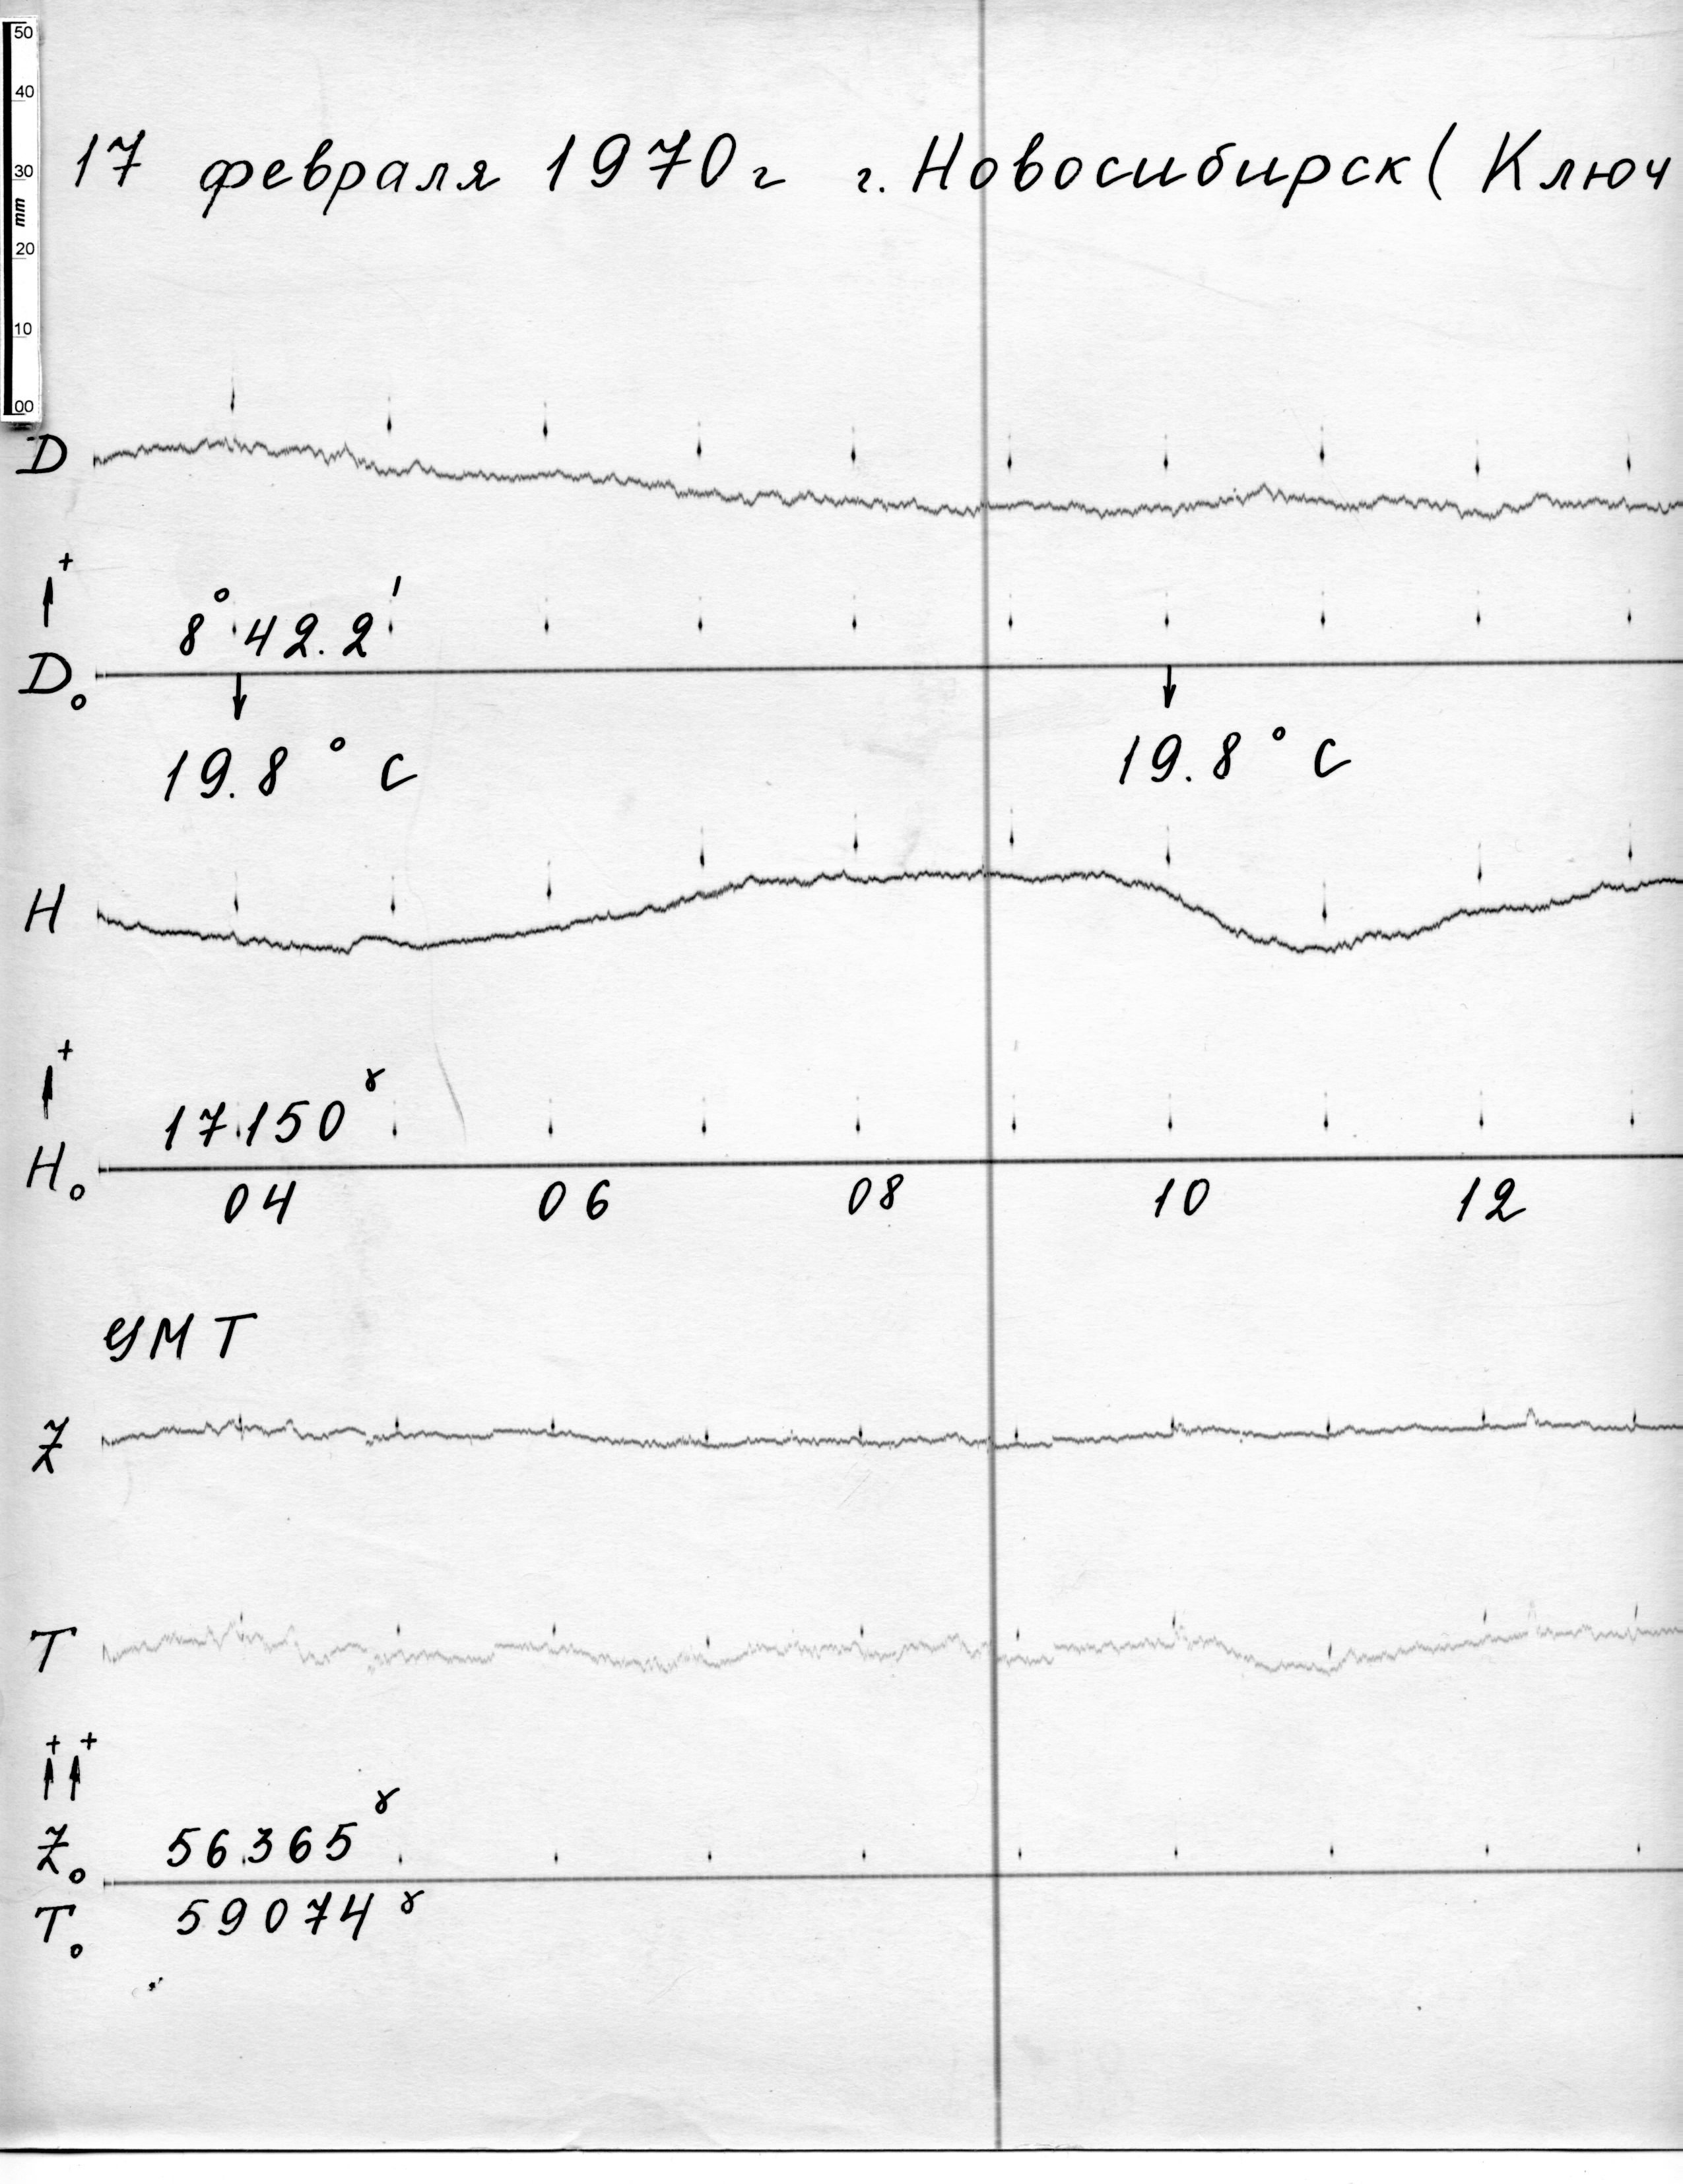 50
40
30
mm
20
10
00
17 февраля 1970г г. Новосибирск ( Ключ
D
+
8° 42.2'
D₀
19.8 ° C 19.8 ° C
H
+
17150 ɣ
H₀
04 06 08 10 12
УМТ
Z
T
+ +
56365 ɣ
Z₀
T₀ 59074 ɣ